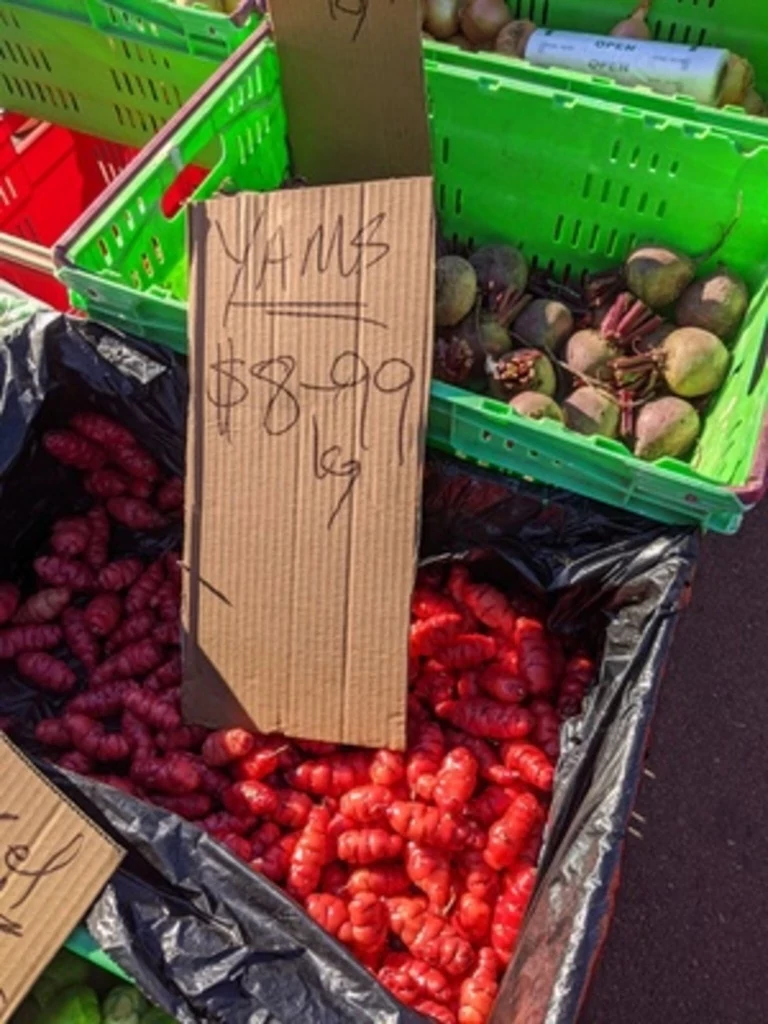 kg
OPEN
OPEN
YAMS
$8-99
kg